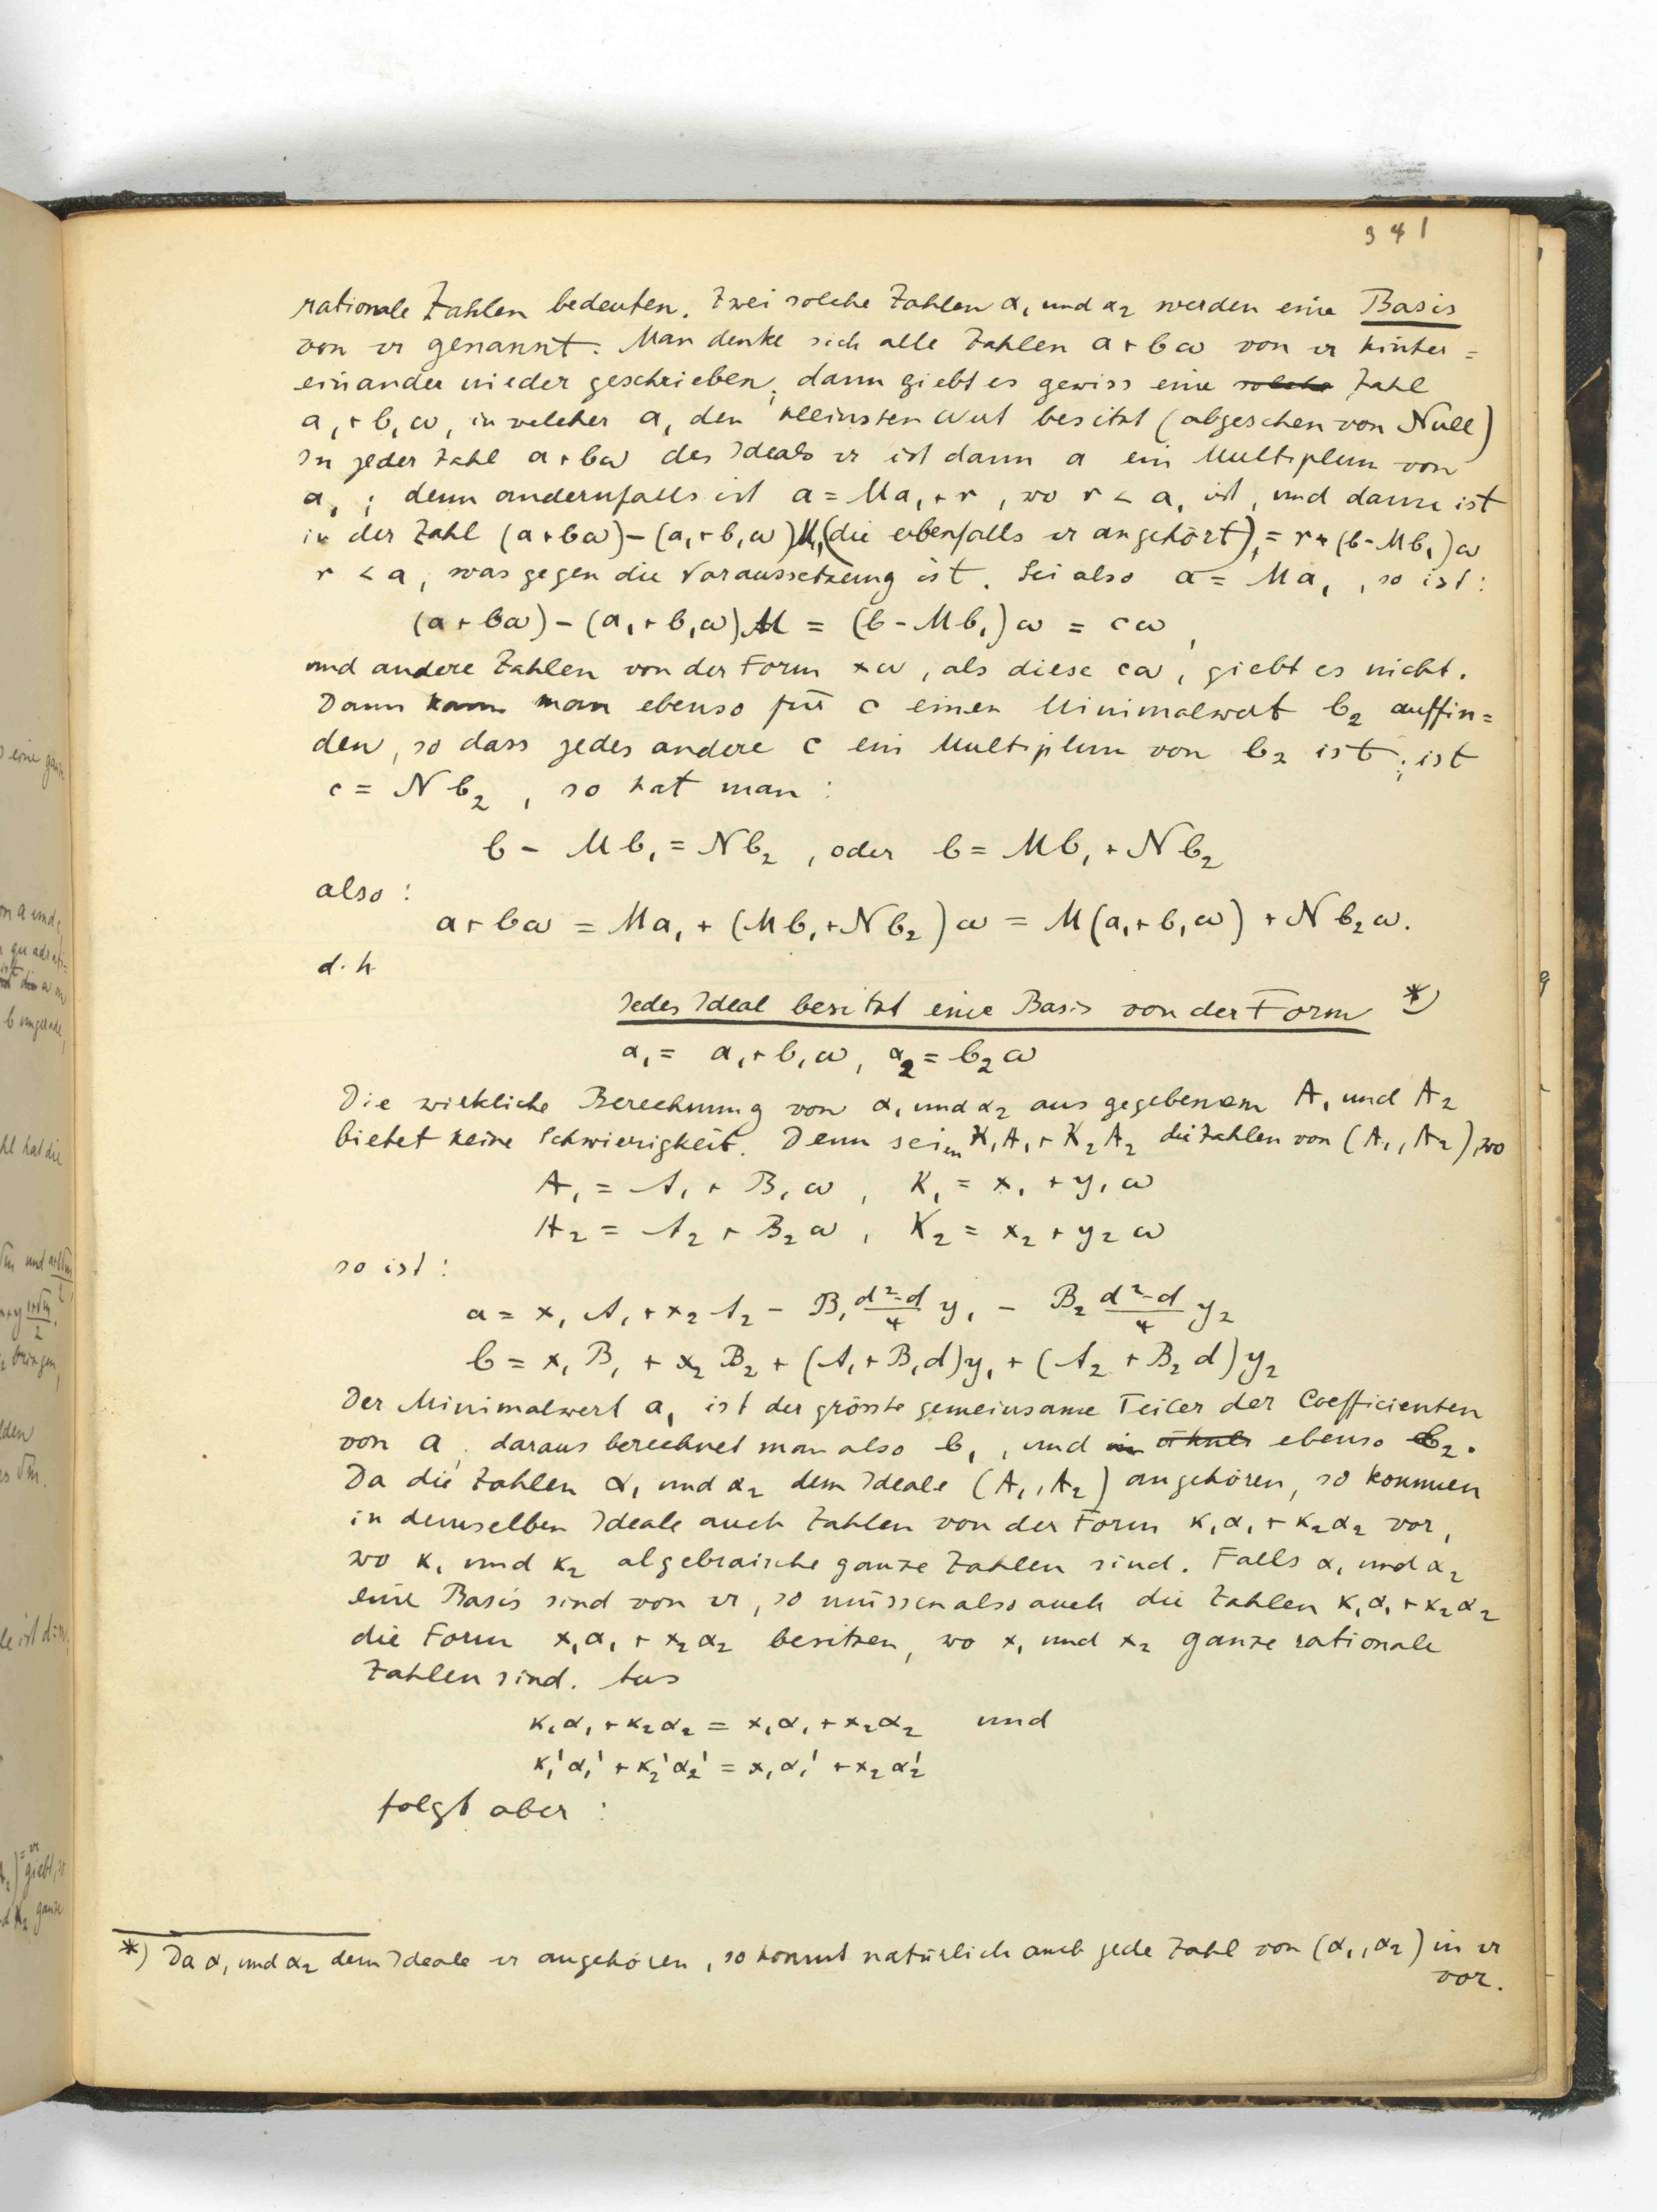 341
rationale Zahlen bedeuten. Zwei solche Zahlen α₁ und α₂ werden eine Basis
von 𝔞 genannt. Man denke sich alle Zahlen a + bω von 𝔞 hinter=
einander nieder geschrieben; dann giebt es gewiss eine solche Zahl
a₁ + b₁ω, in welcher a₁ den kleinsten Wert besitzt (abgesehen von Null)
In jeder Zahl a + bω des Ideals 𝔞 ist dann a ein Multiplum von
a₁ ; denn andernfalls ist a = Ma₁ + r , wo r < a₁ ist, und dann ist
in der Zahl (a + bω) − (a₁ + b₁ω)M, (die ebenfalls 𝔞 angehört), = r + (b − Mb₁)ω
r < a, was gegen die Voraussetzung ist. Sei also a = Ma₁ , so ist:
(a + bω) − (a₁ + b₁ω)M = (b − Mb₁)ω = cω ,
und andere Zahlen von der Form xω, als diese cω, giebt es nicht.
Dann kann man ebenso für c einen Minimalwert b₂ auffin=
den, so dass jedes andere c ein Multiplum von b₂ ist; ist
c = Nb₂ , so hat man :
b − Mb₁ = Nb₂ , oder b = Mb₁ + Nb₂
also :
a + bω = Ma₁ + (Mb₁ + Nb₂)ω = M(a₁ + b₁ω) + Nb₂ω.
d. h.
Jedes Ideal besitzt eine Basis von der Form *)
α₁ = a₁ + b₁ω, α₂ = b₂ω
Die wirkliche Berechnung von α₁ und α₂ aus gegebenem A₁ und A₂
bietet keine Schwierigkeit. Denn seien K₁A₁ + K₂A₂ die Zahlen von (A₁, A₂), wo
A₁ = A₁ + B₁ω , K₁ = x₁ + y₁ω
A₂ = A₂ + B₂ω , K₂ = x₂ + y₂ω
so ist :
a = x₁A₁ + x₂A₂ − B₁ (d²−d)/4 y₁ − B₂ (d²−d)/4 y₂
b = x₁B₁ + x₂B₂ + (A₁ + B₁d)y₁ + (A₂ + B₂d)y₂
Der Minimalwert a₁ ist der grösste gemeinsame Teiler der Coefficienten
von a ; daraus berechnet man also b₁ , und ebenso b₂.
Da die Zahlen α₁ und α₂ dem Ideale (A₁, A₂) angehören, so kommen
in demselben Ideale auch Zahlen von der Form κ₁α₁ + κ₂α₂ vor,
wo κ₁ und κ₂ algebraische ganze Zahlen sind. Falls α₁ und α₂
eine Basis sind von 𝔞, so müssen also auch die Zahlen κ₁α₁ + κ₂α₂
die Form x₁α₁ + x₂α₂ besitzen, wo x₁ und x₂ ganze rationale
Zahlen sind. Aus
κ₁α₁ + κ₂α₂ = x₁α₁ + x₂α₂ und
κ₁'α₁' + κ₂'α₂' = x₁α₁' + x₂α₂'
folgt aber :
*) Da α₁ und α₂ dem Ideale 𝔞 angehören, so kommt natürlich auch jede Zahl von (α₁, α₂) in 𝔞
vor.